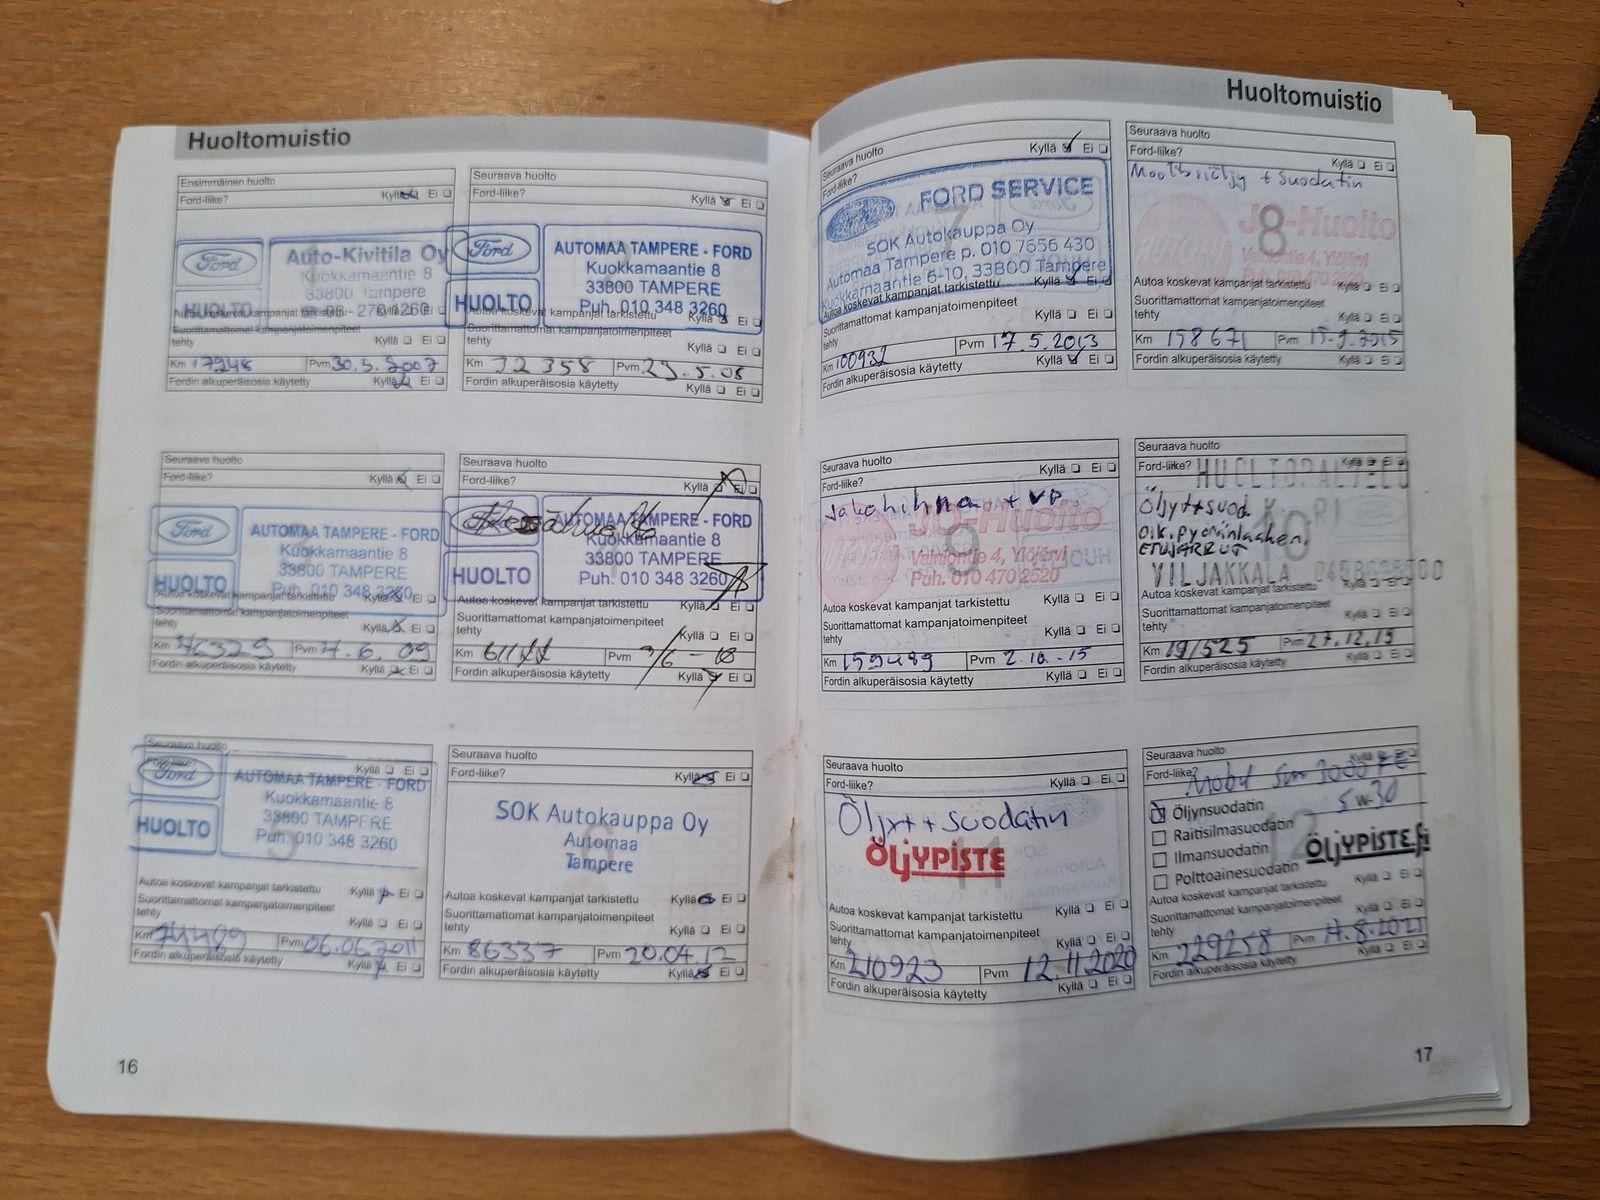 Huoltomuistio
Ensimmäinen huolto
Ford-liike? Kyllä Ei
Ford
HUOLTO
Auto-Kivitila Oy
Kuokkamaantie 8
33800 Tampere
Autoa koskevat kampanjat tarkistettu Kyllä Ei
Suorittamattomat kampanjatoimenpiteet
tehty Kyllä Ei
Km 17948 Pvm 30.5.2007
Fordin alkuperäisosia käytetty Kyllä Ei
Seuraava huolto
Ford-liike? Kyllä Ei
Ford
HUOLTO
AUTOMAA TAMPERE - FORD
Kuokkamaantie 8
33800 TAMPERE
Puh. 010 348 3260
Autoa koskevat kampanjat tarkistettu Kyllä Ei
Suorittamattomat kampanjatoimenpiteet
tehty Kyllä Ei
Km 32 358 Pvm 23.5.08
Fordin alkuperäisosia käytetty Kyllä Ei
Seuraava huolto
Ford-liike? Kyllä Ei
Ford
HUOLTO
AUTOMAA TAMPERE - FORD
Kuokkamaantie 8
33800 TAMPERE
Puh. 010 348 3260
Autoa koskevat kampanjat tarkistettu Kyllä Ei
Suorittamattomat kampanjatoimenpiteet
tehty Kyllä Ei
Km 46329 Pvm 4.6.09
Fordin alkuperäisosia käytetty Kyllä Ei
Seuraava huolto
Ford-liike? Kyllä Ei
HUOLTO
AUTOMAA TAMPERE - FORD
Kuokkamaantie 8
33800 TAMPERE
Puh. 010 348 3260
Autoa koskevat kampanjat tarkistettu Kyllä Ei
Suorittamattomat kampanjatoimenpiteet
tehty Kyllä Ei
Km Pvm
Fordin alkuperäisosia käytetty Kyllä Ei
Seuraava huolto
Kyllä Ei
Ford
HUOLTO
AUTOMAA TAMPERE - FORD
Kuokkamaantie 8
33800 TAMPERE
Puh. 010 348 3260
5
Autoa koskevat kampanjat tarkistettu Kyllä Ei
Suorittamattomat kampanjatoimenpiteet
tehty Kyllä Ei
Km 74489 Pvm 06.06.2011
Fordin alkuperäisosia käytetty Kyllä Ei
Seuraava huolto
Ford-liike? Kyllä Ei
SOK Autokauppa Oy
Automaa
Tampere
6
Autoa koskevat kampanjat tarkistettu Kyllä Ei
Suorittamattomat kampanjatoimenpiteet
tehty Kyllä Ei
Km 86337 Pvm 20.04.12
Fordin alkuperäisosia käytetty Kyllä Ei
16
Huoltomuistio
Seuraava huolto
Ford-liike? Kyllä Ei
FORD SERVICE
7
SOK Autokauppa Oy
Automaa Tampere p. 010 7656 430
Kuokkamaantie 6-10, 33800 Tampere
Autoa koskevat kampanjat tarkistettu Kyllä Ei
Suorittamattomat kampanjatoimenpiteet
tehty Kyllä Ei
Km 100932 Pvm 17.5.2013
Fordin alkuperäisosia käytetty Kyllä Ei
Seuraava huolto
Ford-liike? Kyllä Ei
Moottoriöljy + Suodatin
JO-Huolto
8
Vainiontie 4, Ylöjärvi
Puh. 010 470 2520
Autoa koskevat kampanjat tarkistettu Kyllä Ei
Suorittamattomat kampanjatoimenpiteet
tehty Kyllä Ei
Km 158671 Pvm 15.9.2015
Fordin alkuperäisosia käytetty Kyllä Ei
Seuraava huolto
Ford-liike? Kyllä Ei
Jakohihna + VP
JO-Huolto
9
Vainiontie 4, Ylöjärvi
Puh. 010 470 2520
Autoa koskevat kampanjat tarkistettu Kyllä Ei
Suorittamattomat kampanjatoimenpiteet
tehty Kyllä Ei
Km 159489 Pvm 2.10.-15
Fordin alkuperäisosia käytetty Kyllä Ei
Seuraava huolto
Ford-liike? Kyllä Ei
Öljyt+suod.
oik. pyöränlaaken.
ETUJARRUT
10
VILJAKKALA
Autoa koskevat kampanjat tarkistettu Kyllä Ei
Suorittamattomat kampanjatoimenpiteet
tehty Kyllä Ei
Km 191525 Pvm 27.12.19
Fordin alkuperäisosia käytetty Kyllä Ei
Seuraava huolto
Ford-liike? Kyllä Ei
Öljyt + suodatin
ÖLJYPISTE
11
Autoa koskevat kampanjat tarkistettu Kyllä Ei
Suorittamattomat kampanjatoimenpiteet
tehty Kyllä Ei
Km 210923 Pvm 12.11.2020
Fordin alkuperäisosia käytetty Kyllä Ei
Seuraava huolto
Ford-liike? Kyllä Ei
5W-30
Öljynsuodatin
Raitisilmasuodatin
Ilmansuodatin
Polttoainesuodatin
ÖLJYPISTE.fi
Autoa koskevat kampanjat tarkistettu Kyllä Ei
Suorittamattomat kampanjatoimenpiteet
tehty Kyllä Ei
Km 229258 Pvm
Fordin alkuperäisosia käytetty Kyllä Ei
17